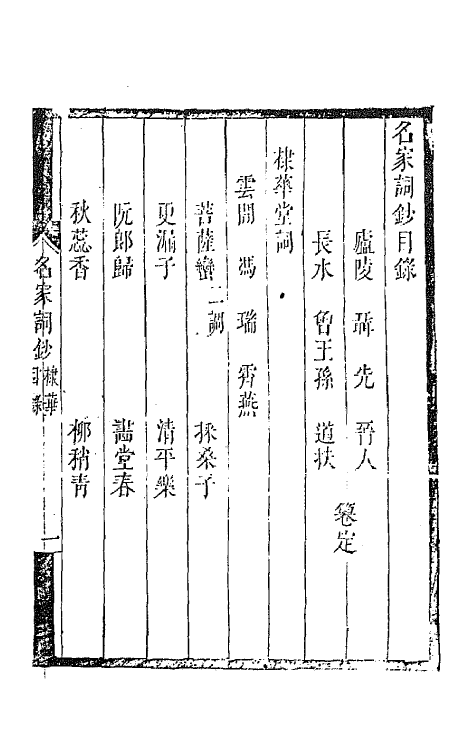 名家詞鈔目錄
廬陵 聶先 晉人
長水 曾王孫 道扶
篹定
棣華堂詞
雲間 馮瑞 霄燕
菩薩蠻二調 採桑子
更漏子 清平樂
阮郎歸 畵堂春
秋蕊香 柳稍青
名家詞鈔 棣華目錄 一